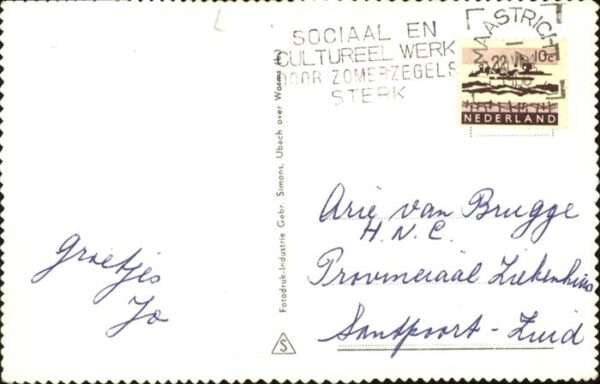 SOCIAAL EN
CULTUREEL WERK
DOOR ZOMERZEGELS
STERK
MAASTRICH
10c
NEDERLAND
Fotodruk-Industrie Gebr. Simons, Ubach over Worms
Arie van Brugge
H.N.C.
Provinciaal Ziekenhuis
Santpoort - Zuid
Groetjes
Jo
S